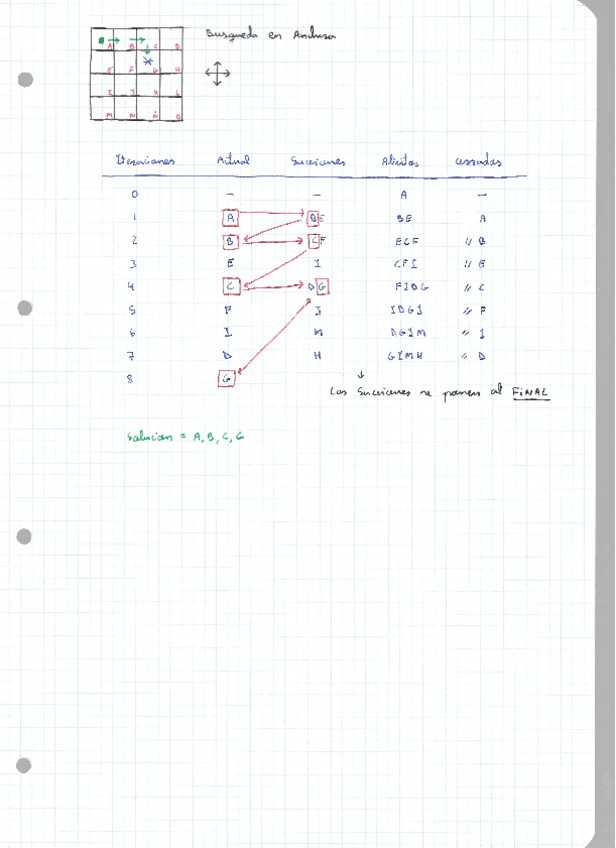 Busqueda en Anchura
A B C D
E F G H
I J K L
M N Ñ O
Iteraciones Actual Sucesores Abiertos cerrados
0 — — A —
1 A BE BE A
2 B CF ECF " B
3 E I CFI " E
4 C DG FIDG " C
5 F J IDGJ " F
6 I M DGJM " I
7 D H GJMH " D
8 G
Los Sucesores se ponen al FINAL
Solucion = A, B, C, G